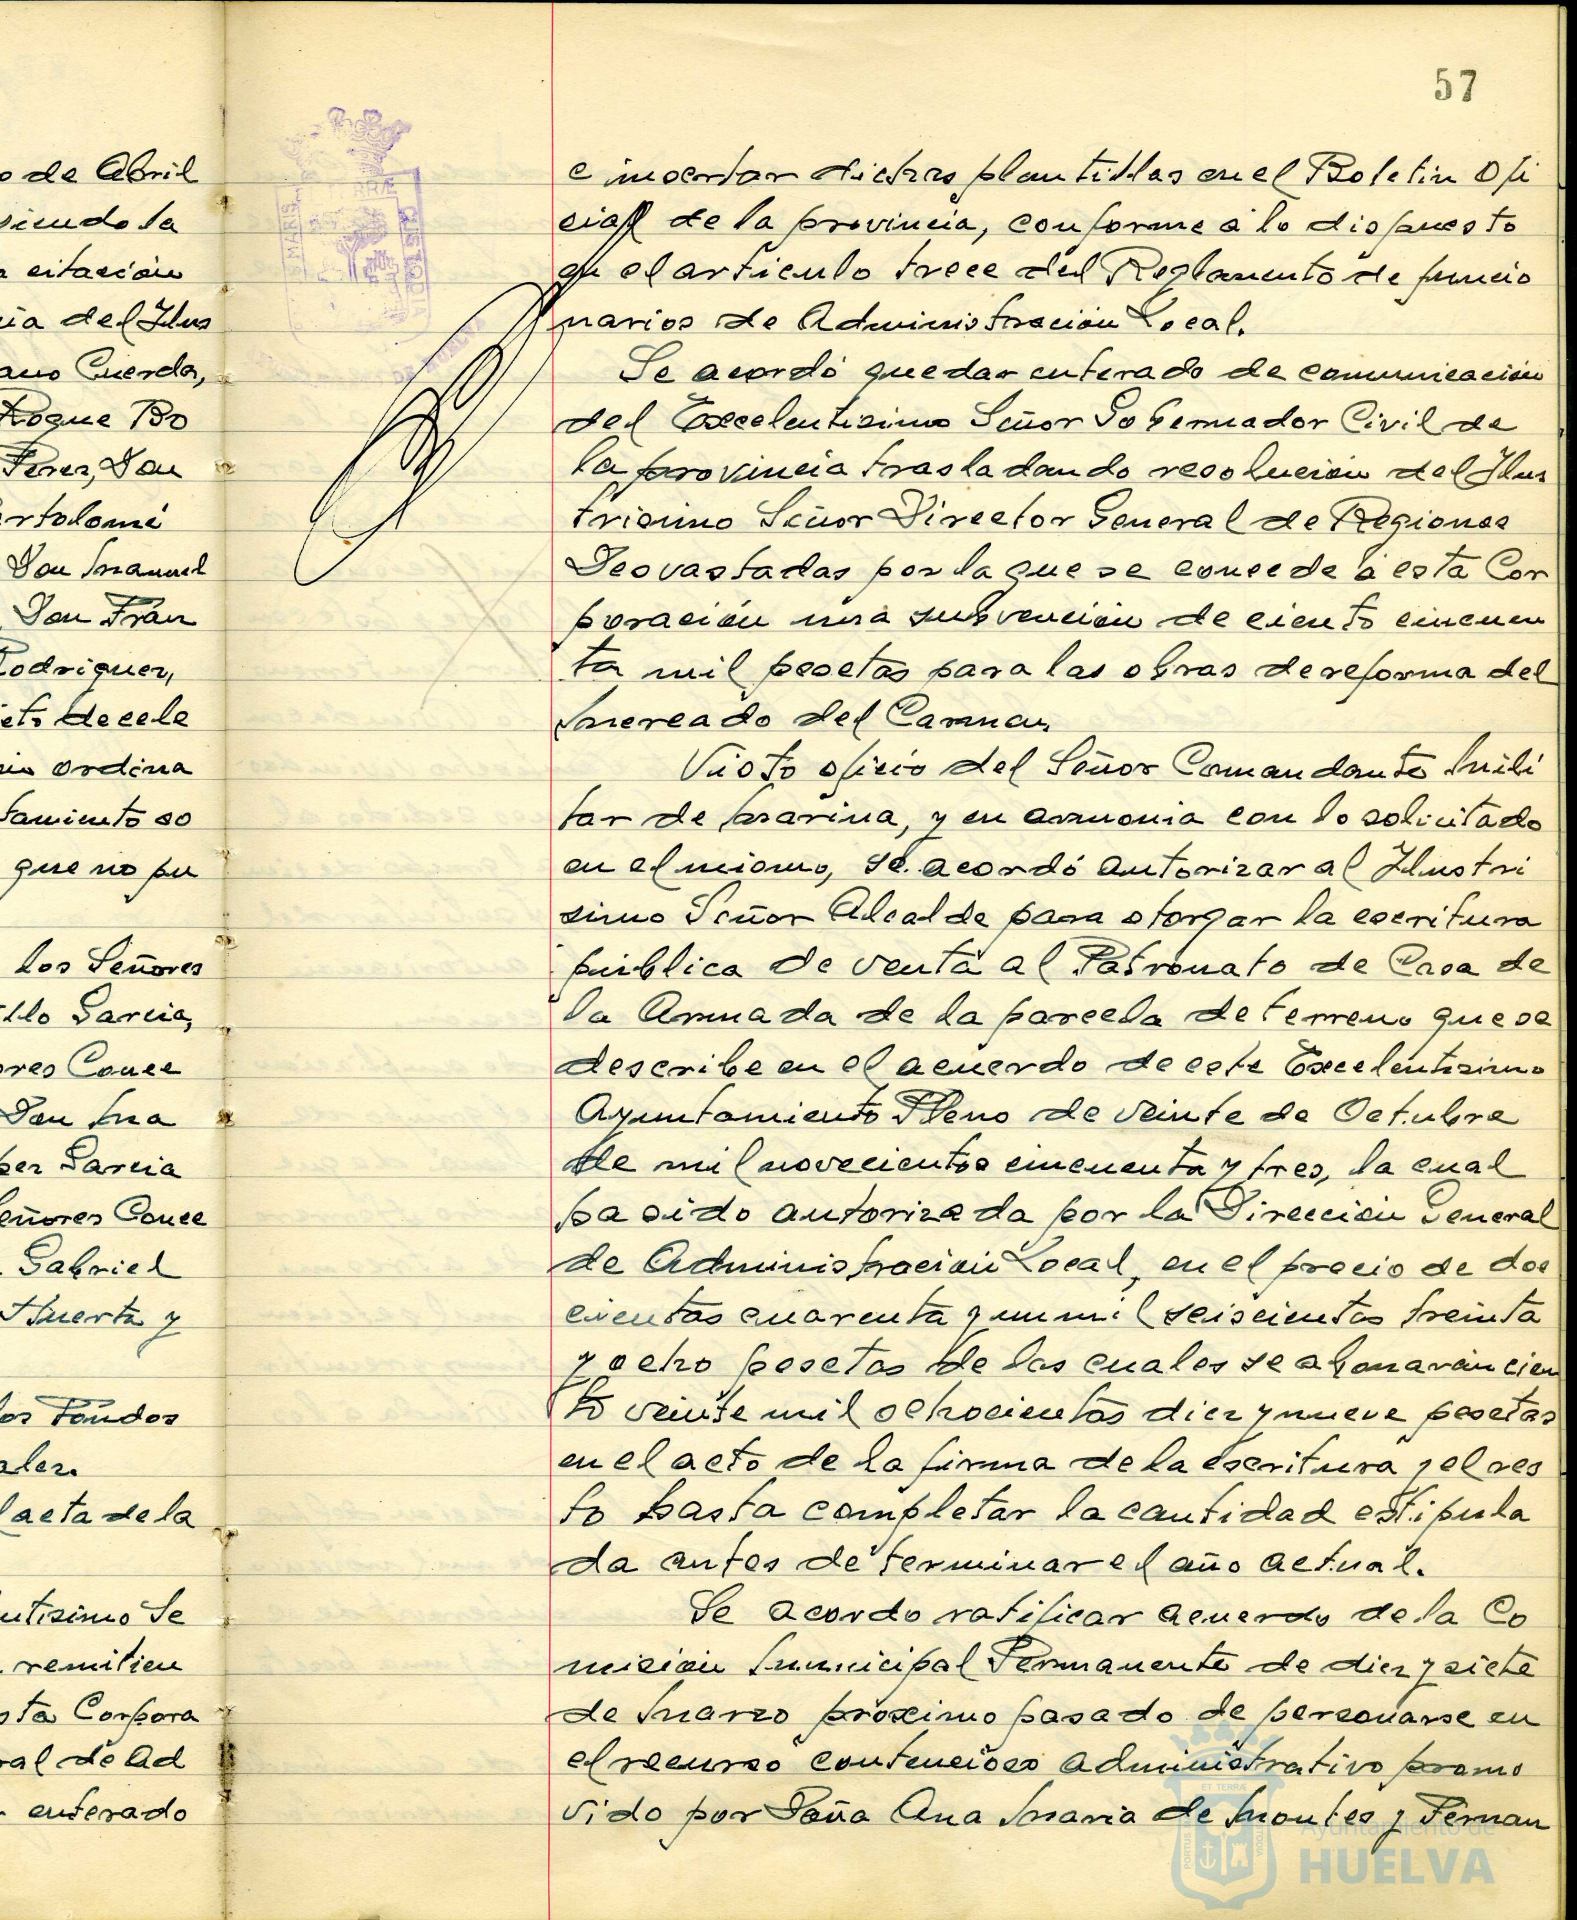 57
o de Abril
siendo la
a citación
cia del Ilus
ano Cuerda,
Roque Bo
Perez, Don
artolomé
Don Manuel
Don Fran
Rodriguez,
eto de cele
ordina
tamiento so
que no pu
los Señores
illo Garcia,
ores Conce
Don Ma
per Garcia
eñores Conce
. Gabriel
Huerta y
los Fondos
ales.
l acta de la
ntisimo Se
. remitien
sta Corpora
ral de Ad
enterado
e insertar dichas plantillas en el Boletin Ofi
cial de la provincia, conforme a lo dispuesto
en el articulo trece del Reglamento de funcio
narios de Administración Local.
Se acordó quedar enterado de comunicación
del Excelentisimo Señor Gobernador Civil de
la provincia trasladando resolución del Ilus
trisimo Señor Director General de Regiones
Devastadas por la que se concede a esta Cor
poración una subvención de ciento cincuen
ta mil pesetas para las obras de reforma del
Mercado del Carmen.
Visto oficio del Señor Comandante Mili
tar de Marina, y en armonia con lo solicitado
en el mismo, se acordó autorizar al Ilustri
simo Señor Alcalde para otorgar la escritura
pública de venta al Patronato de Casa de
la Armada de la parcela de terreno que se
describe en el acuerdo de este Excelentisimo
Ayuntamiento Pleno de veinte de Octubre
de mil novecientos cincuenta y tres, la cual
ha sido autorizada por la Dirección General
de Administración Local, en el precio de dos
cientas cuarenta y un mil seiscientas treinta
y ocho pesetas de las cuales se abonarán cien
to veinte mil ochocientas diez y nueve pesetas
en el acto de la firma de la escritura y el res
to hasta completar la cantidad estipula
da antes de terminar el año actual.
Se acordo ratificar acuerdo de la Co
misión Municipal Permanente de diez y siete
de Marzo próximo pasado de personarse en
el recurso contencioso administrativo promo
vido por Doña Ana Maria de Montes y Fernan
Ayuntamiento de
HUELVA